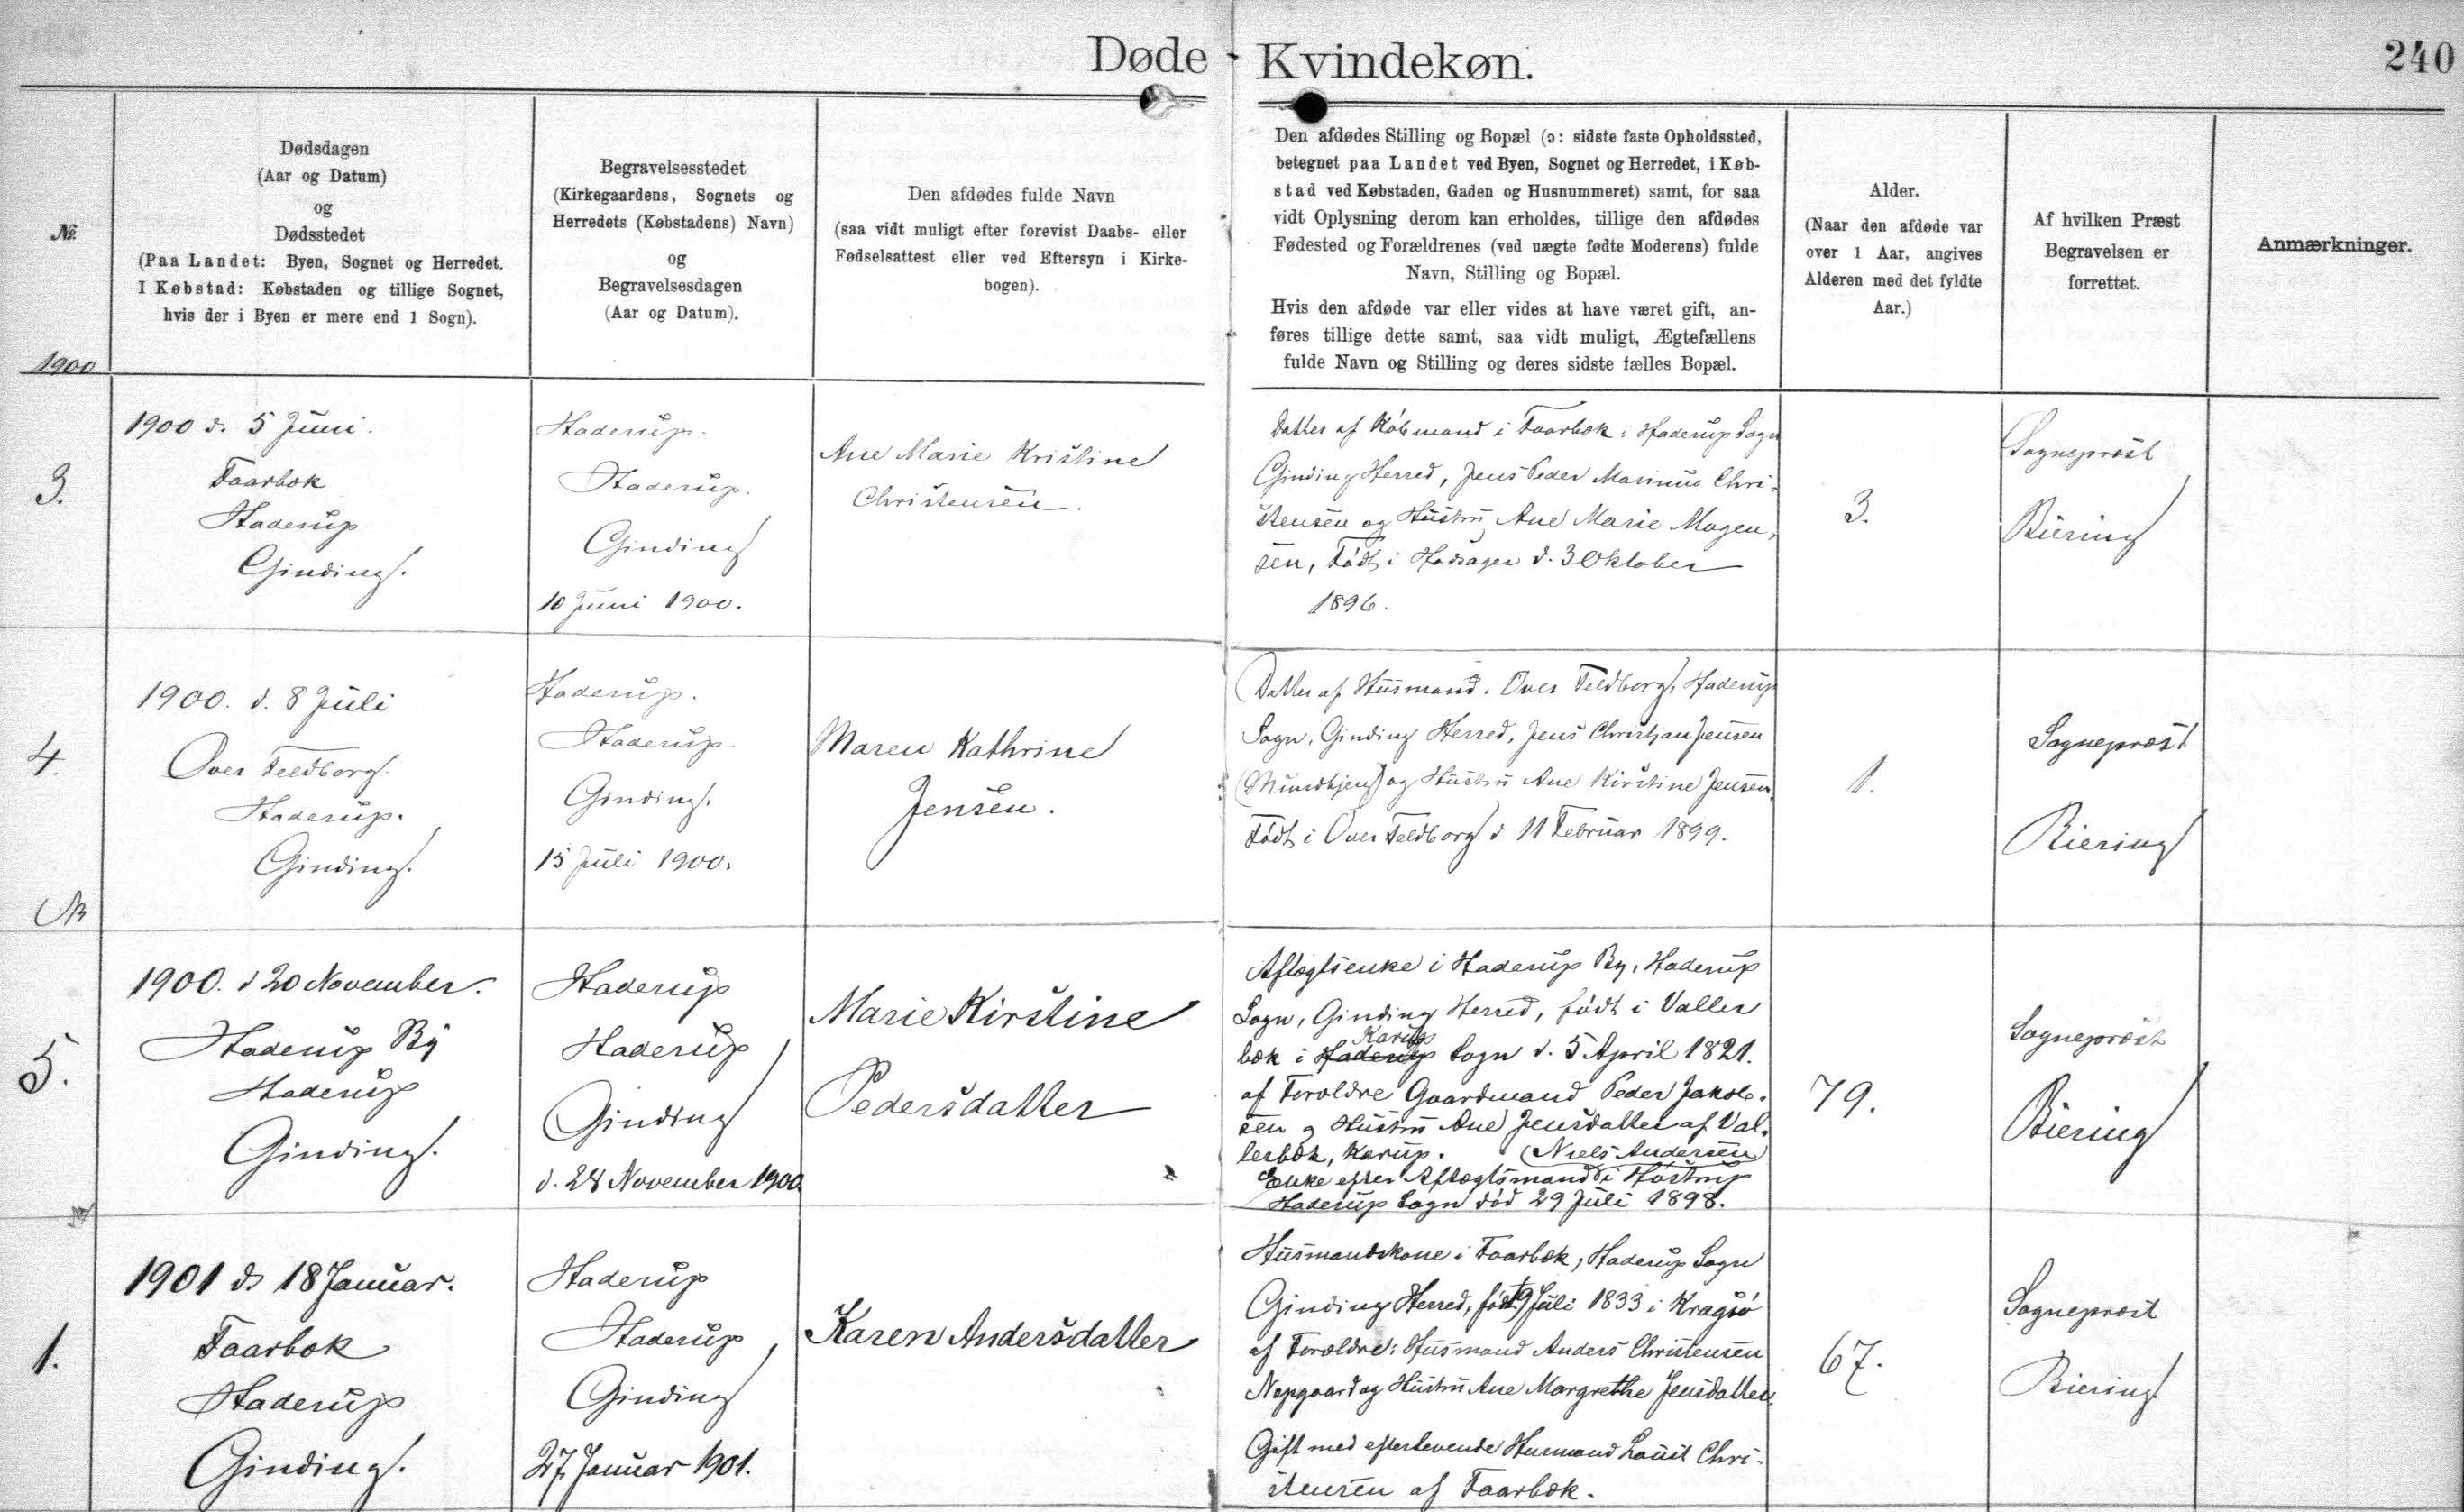 Døde - Kvindekøn.
240
№
1900
Dødsdagen
(Aar og Datum)
og
Dødsstedet
(Paa Landet: Byen, Sognet og Herredet.
I Købstad: Købstaden og tillige Sognet,
hvis der i Byen er mere end 1 Sogn).
Begravelsesstedet
(Kirkegaardens, Sognets og
Herredets (Købstadens) Navn)
og
Begravelsesdagen
(Aar og Datum).
Den afdødes fulde Navn
(saa vidt muligt efter forevist Daabs- eller
Fødselsattest eller ved Eftersyn i Kirke-
bogen).
Den afdødes Stilling og Bopæl (ɔ: sidste faste Opholdssted,
betegnet paa Landet ved Byen, Sognet og Herredet, i Køb-
stad ved Købstaden, Gaden og Husnummeret) samt, for saa
vidt Oplysning derom kan erholdes, tillige den afdødes
Fødested og Forældrenes (ved uægte fødte Moderens) fulde
Navn, Stilling og Bopæl.
Hvis den afdøde var eller vides at have været gift, an-
føres tillige dette samt, saa vidt muligt, Ægtefællens
fulde Navn og Stilling og deres sidste fælles Bopæl.
Alder.
(Naar den afdøde var
over 1 Aar, angives
Alderen med det fyldte
Aar.)
Af hvilken Præst
Begravelsen er
forrettet.
Anmærkninger.
3.
1900 d. 5 Juni.
Faarbæk
Haderup
Ginding.
Haderup.
Haderup.
Ginding
10 Juni 1900.
Ane Marie Kristine
Christensen.
Datter af Købmand i Faarbæk i Haderup Sogn
Ginding Herred, Jens Peder Marinus Chri-
stensen og Hustru Ane Marie Mogen-
sen, Født i Hodsager d. 3 Oktober
1896.
3.
Sognepræst
Biering
4.
1900. d. 8 Juli
Over Feldborg.
Haderup.
Ginding.
Haderup.
Haderup.
Ginding.
15 Juli 1900.
Maren Kathrine
Jensen.
Datter af Husmand i Over Feldborg, Haderup
Sogn, Ginding Herred, Jens Christjan Jensen
og Hustru Ane Kirstine Jensen.
Født i Over Feldborg d. 11 Februar 1899.
1.
Sognepræst
Biering
5.
1900. d 20 November.
Haderup By
Haderup
Ginding.
Haderup
Haderup
Ginding
d. 28 November 1900.
Marie Kirstine
Pedersdatter
Aftægtsenke i Haderup By, Haderup
Sogn, Ginding Herred, født i Valler
Karup
bæk i Haderup Sogn d. 5 April 1821.
af Forældre Gaardmand Peder Jakob-
sen og Hustru Ane Jensdatter af Val-
lerbæk, Karup. (Niels Andersen)
Enke efter Aftægtsmand i Hostrup
Haderup Sogn død 29 Juli 1898.
79.
Sognepræst
Biering
1.
1901 d. 18 Januar.
Faarbæk
Haderup
Ginding.
Haderup
Haderup
Ginding
27 Januar 1901.
Karen Andersdatter
Husmandskone i Faarbæk, Haderup Sogn
Ginding Herred, født 19 Juli 1833 i Kragsø
af Forældre: Husmand Anders Christensen
Nepgaard og Hustru Ane Margrethe Jensdatter.
Gift med efterlevende Husmand Laust Chri-
stensen af Faarbæk.
67.
Sognepræst
Biering